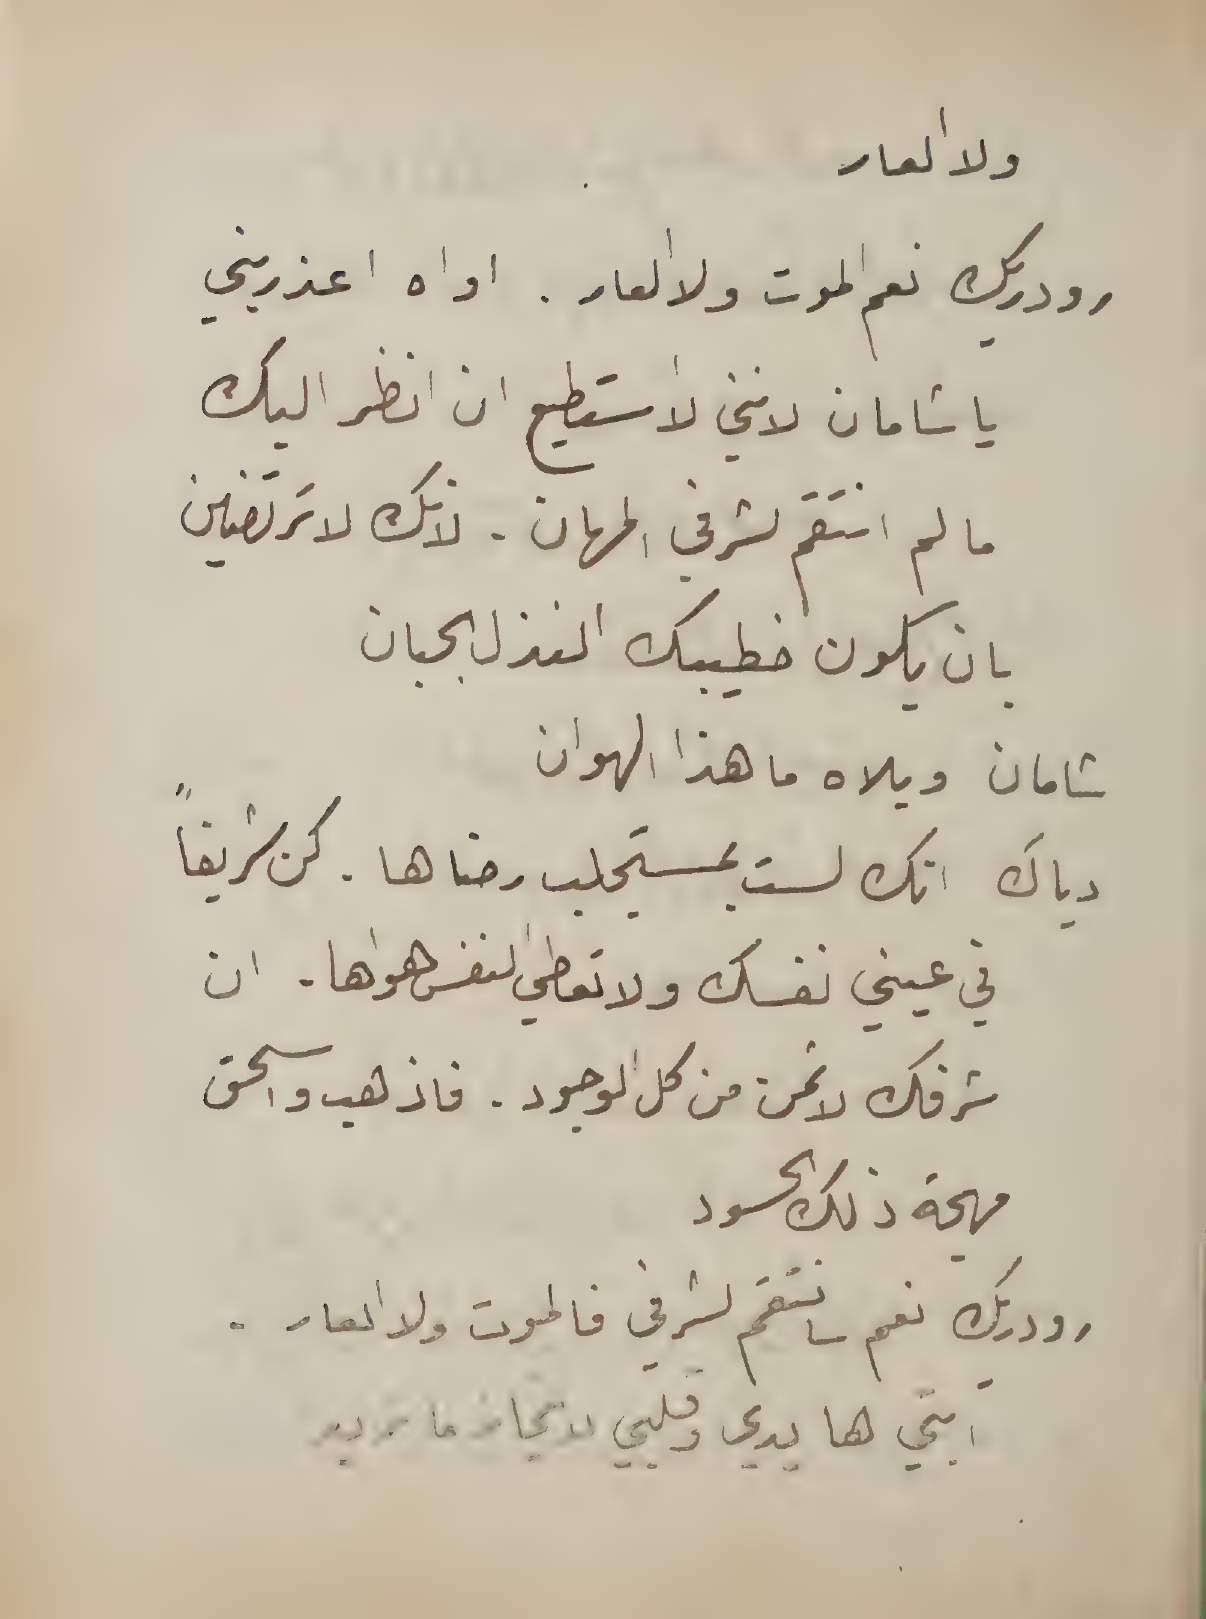 ولا العار
رودريك نعم الموت ولا العار. اواه اعذريني
يا شامان لانني لا استطيع ان انظر اليك
ما لم انتقم لشرفي المهان. لانك لا ترتضين
بان يكون خطيبك النذل الجبان
شامان ويلاه ما هذا الهوان
دياك انك لست بمستجلب رضاها. كن شريفاً
في عيني نفسك ولا تعطي النفس هواها. ان
شرفك لاثمن من كل الوجود. فاذهب واسحق
مهجة ذلك الحسود
رودريك نعم سانتقم لشرفي فالموت ولا العار.
ابتي ها يدي وقلبي لانجاز ما تريد